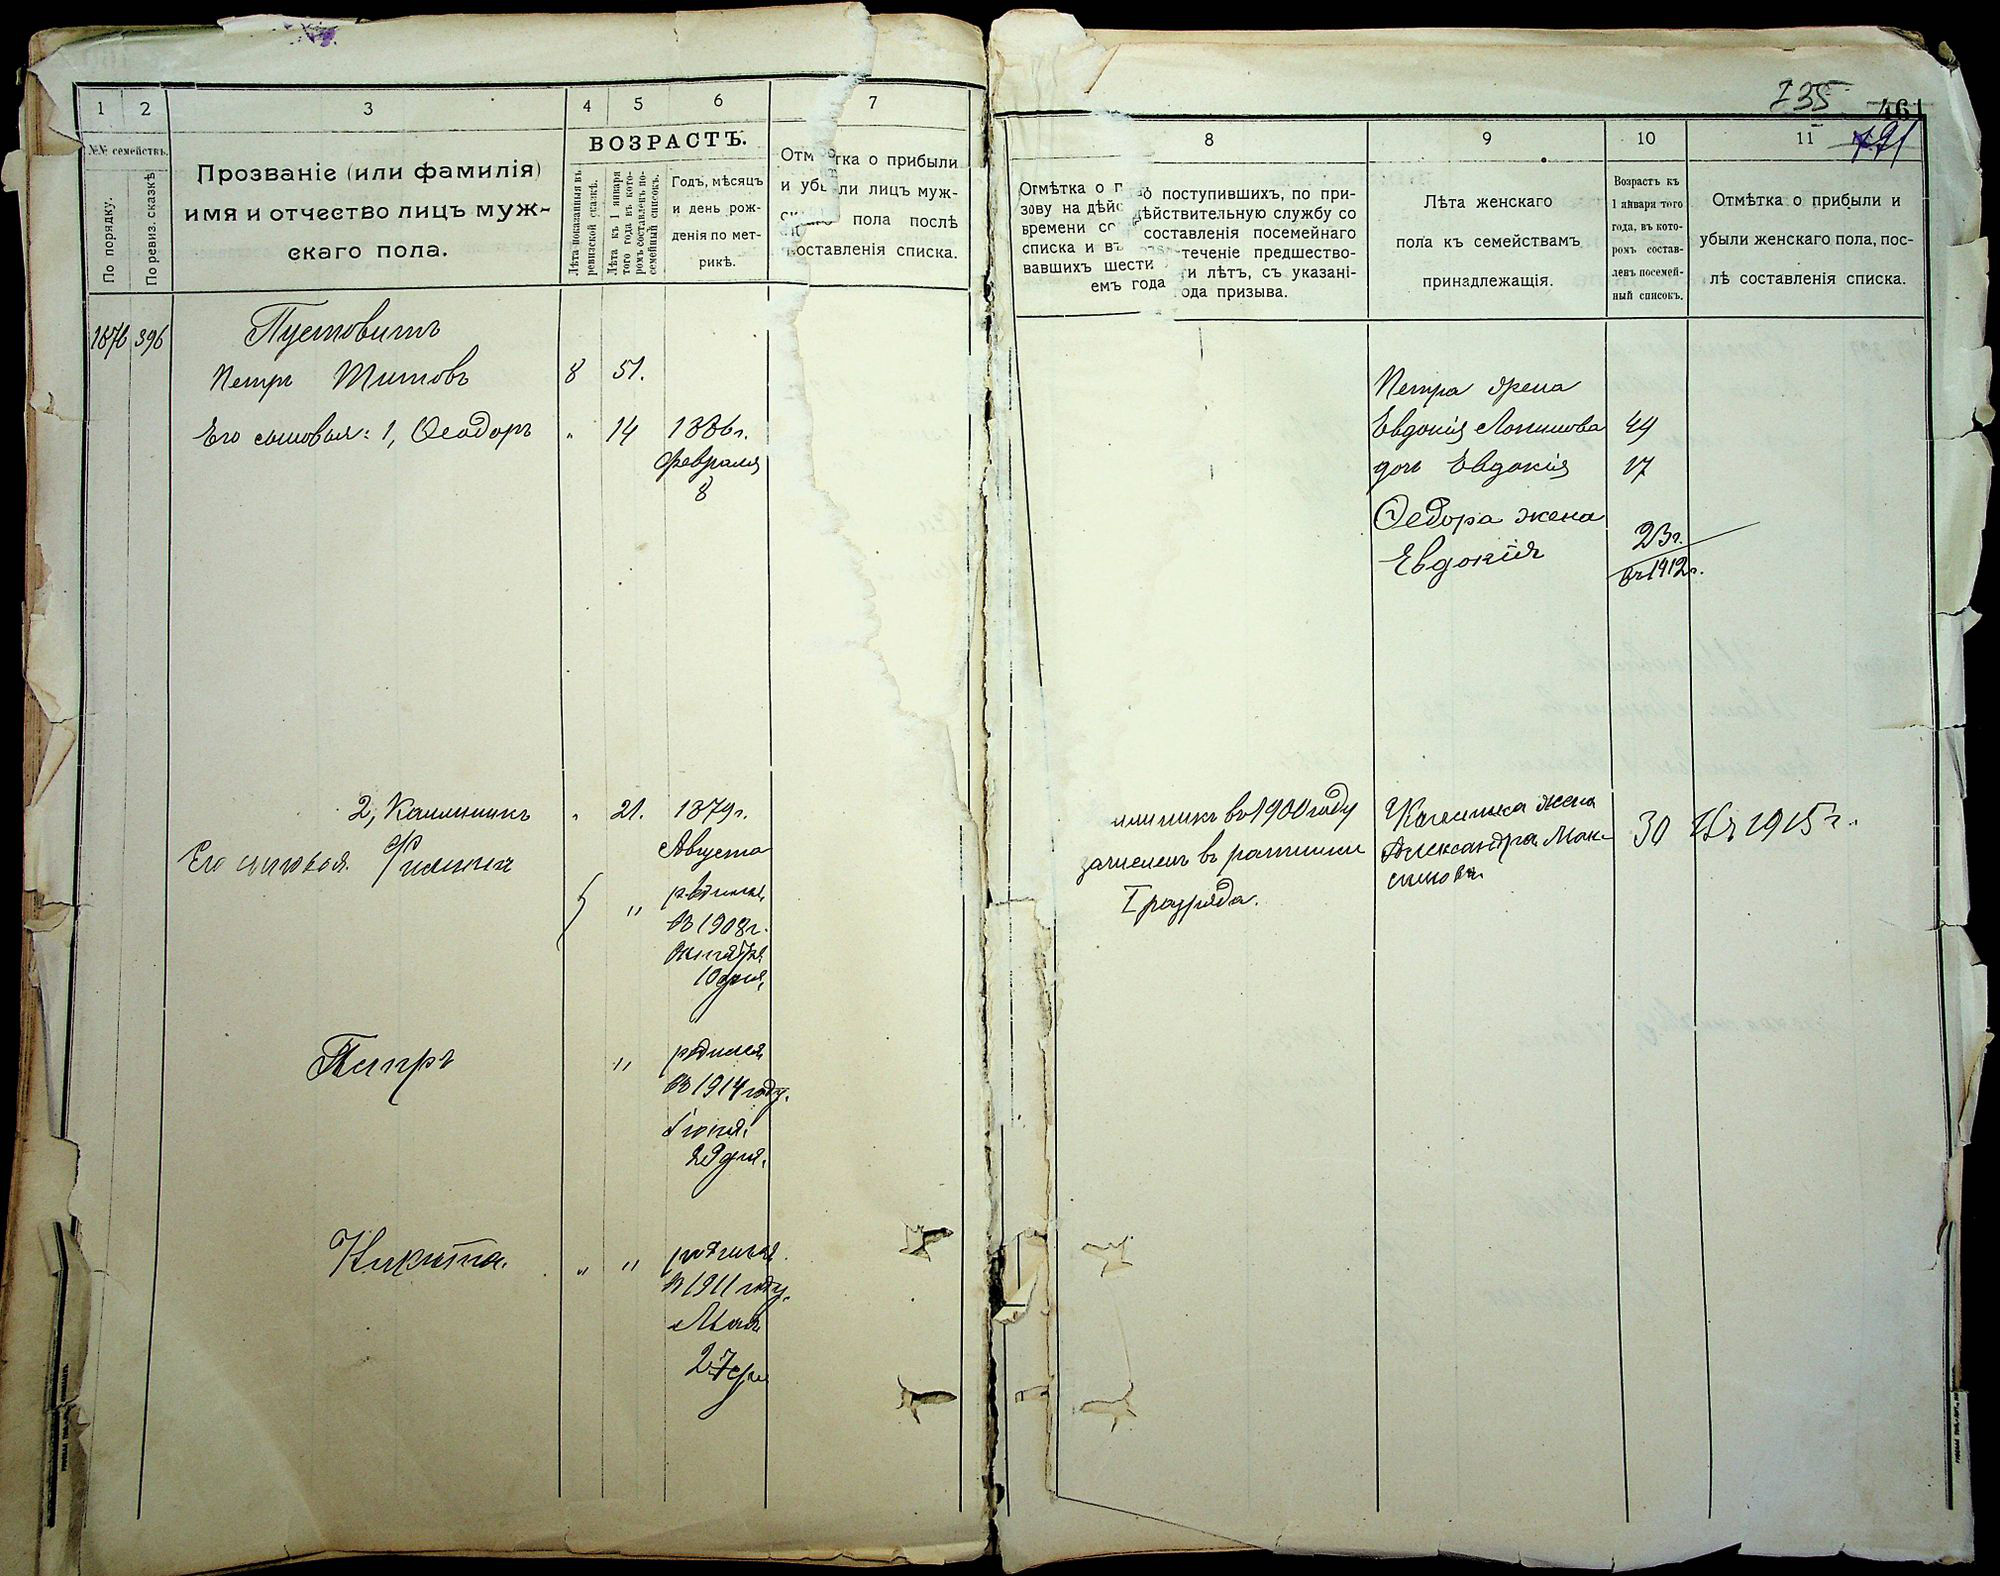 1
2
3
4
5
6
7
№№ семействъ.
По порядку.
По ревиз. сказкѣ
Прозваніе (или фамилія)
имя и отчество лицъ муж-
скаго пола.
ВОЗРАСТЪ.
Лѣта показанныя въ
ревизской сказкѣ.
Лѣта къ 1 января
того года въ кото-
ромъ составленъ по-
семейный списокъ.
Годъ, мѣсяцъ
и день рож-
денія по мет-
рикѣ.
тка о прибыли
и уб ли лицъ муж-
пола послѣ
составленія списка.
1876 396
Пустовитъ
Петръ Титовъ 8 51.
Его сыновья: 1, Ѳеодоръ „ 14 1886 г.
Февраля
8
2, Каллиникъ „ 21. 1879 г.
Августа
Его сыновья. Филиппъ
„ родился
въ 1908 г.
Октября
10 дня,
Петръ „ родился
въ 1914 году.
Іюня
29 дня.
Никита. „ „ родился
въ 1911 году.
Мая
27 дня
235
461
8
9
10
11
Отмѣтка о п о поступившихъ, по при-
зову на дѣйс дѣйствительную службу со
времени со составленія посемейнаго
списка и въ теченіе предшество-
вавшихъ шести и лѣтъ, съ указані-
емъ года ода призыва.
Лѣта женскаго
пола къ семействамъ
принадлежащія.
Возрастъ къ
1 января того
года, въ кото-
ромъ состав-
ленъ посемей-
ный списокъ.
Отмѣтка о прибыли и
убыли женскаго пола, пос-
лѣ составленія списка.
Петра жена
Евдокія 49
дочь Евдокія 17
Ѳедора жена
Евдокія 23 г.
въ 1912 г.
въ 1900 году
зачисленъ въ ратники
I разряда.
Калиника жена
Александра Мак-
симова.
30 Въ 1915 г.